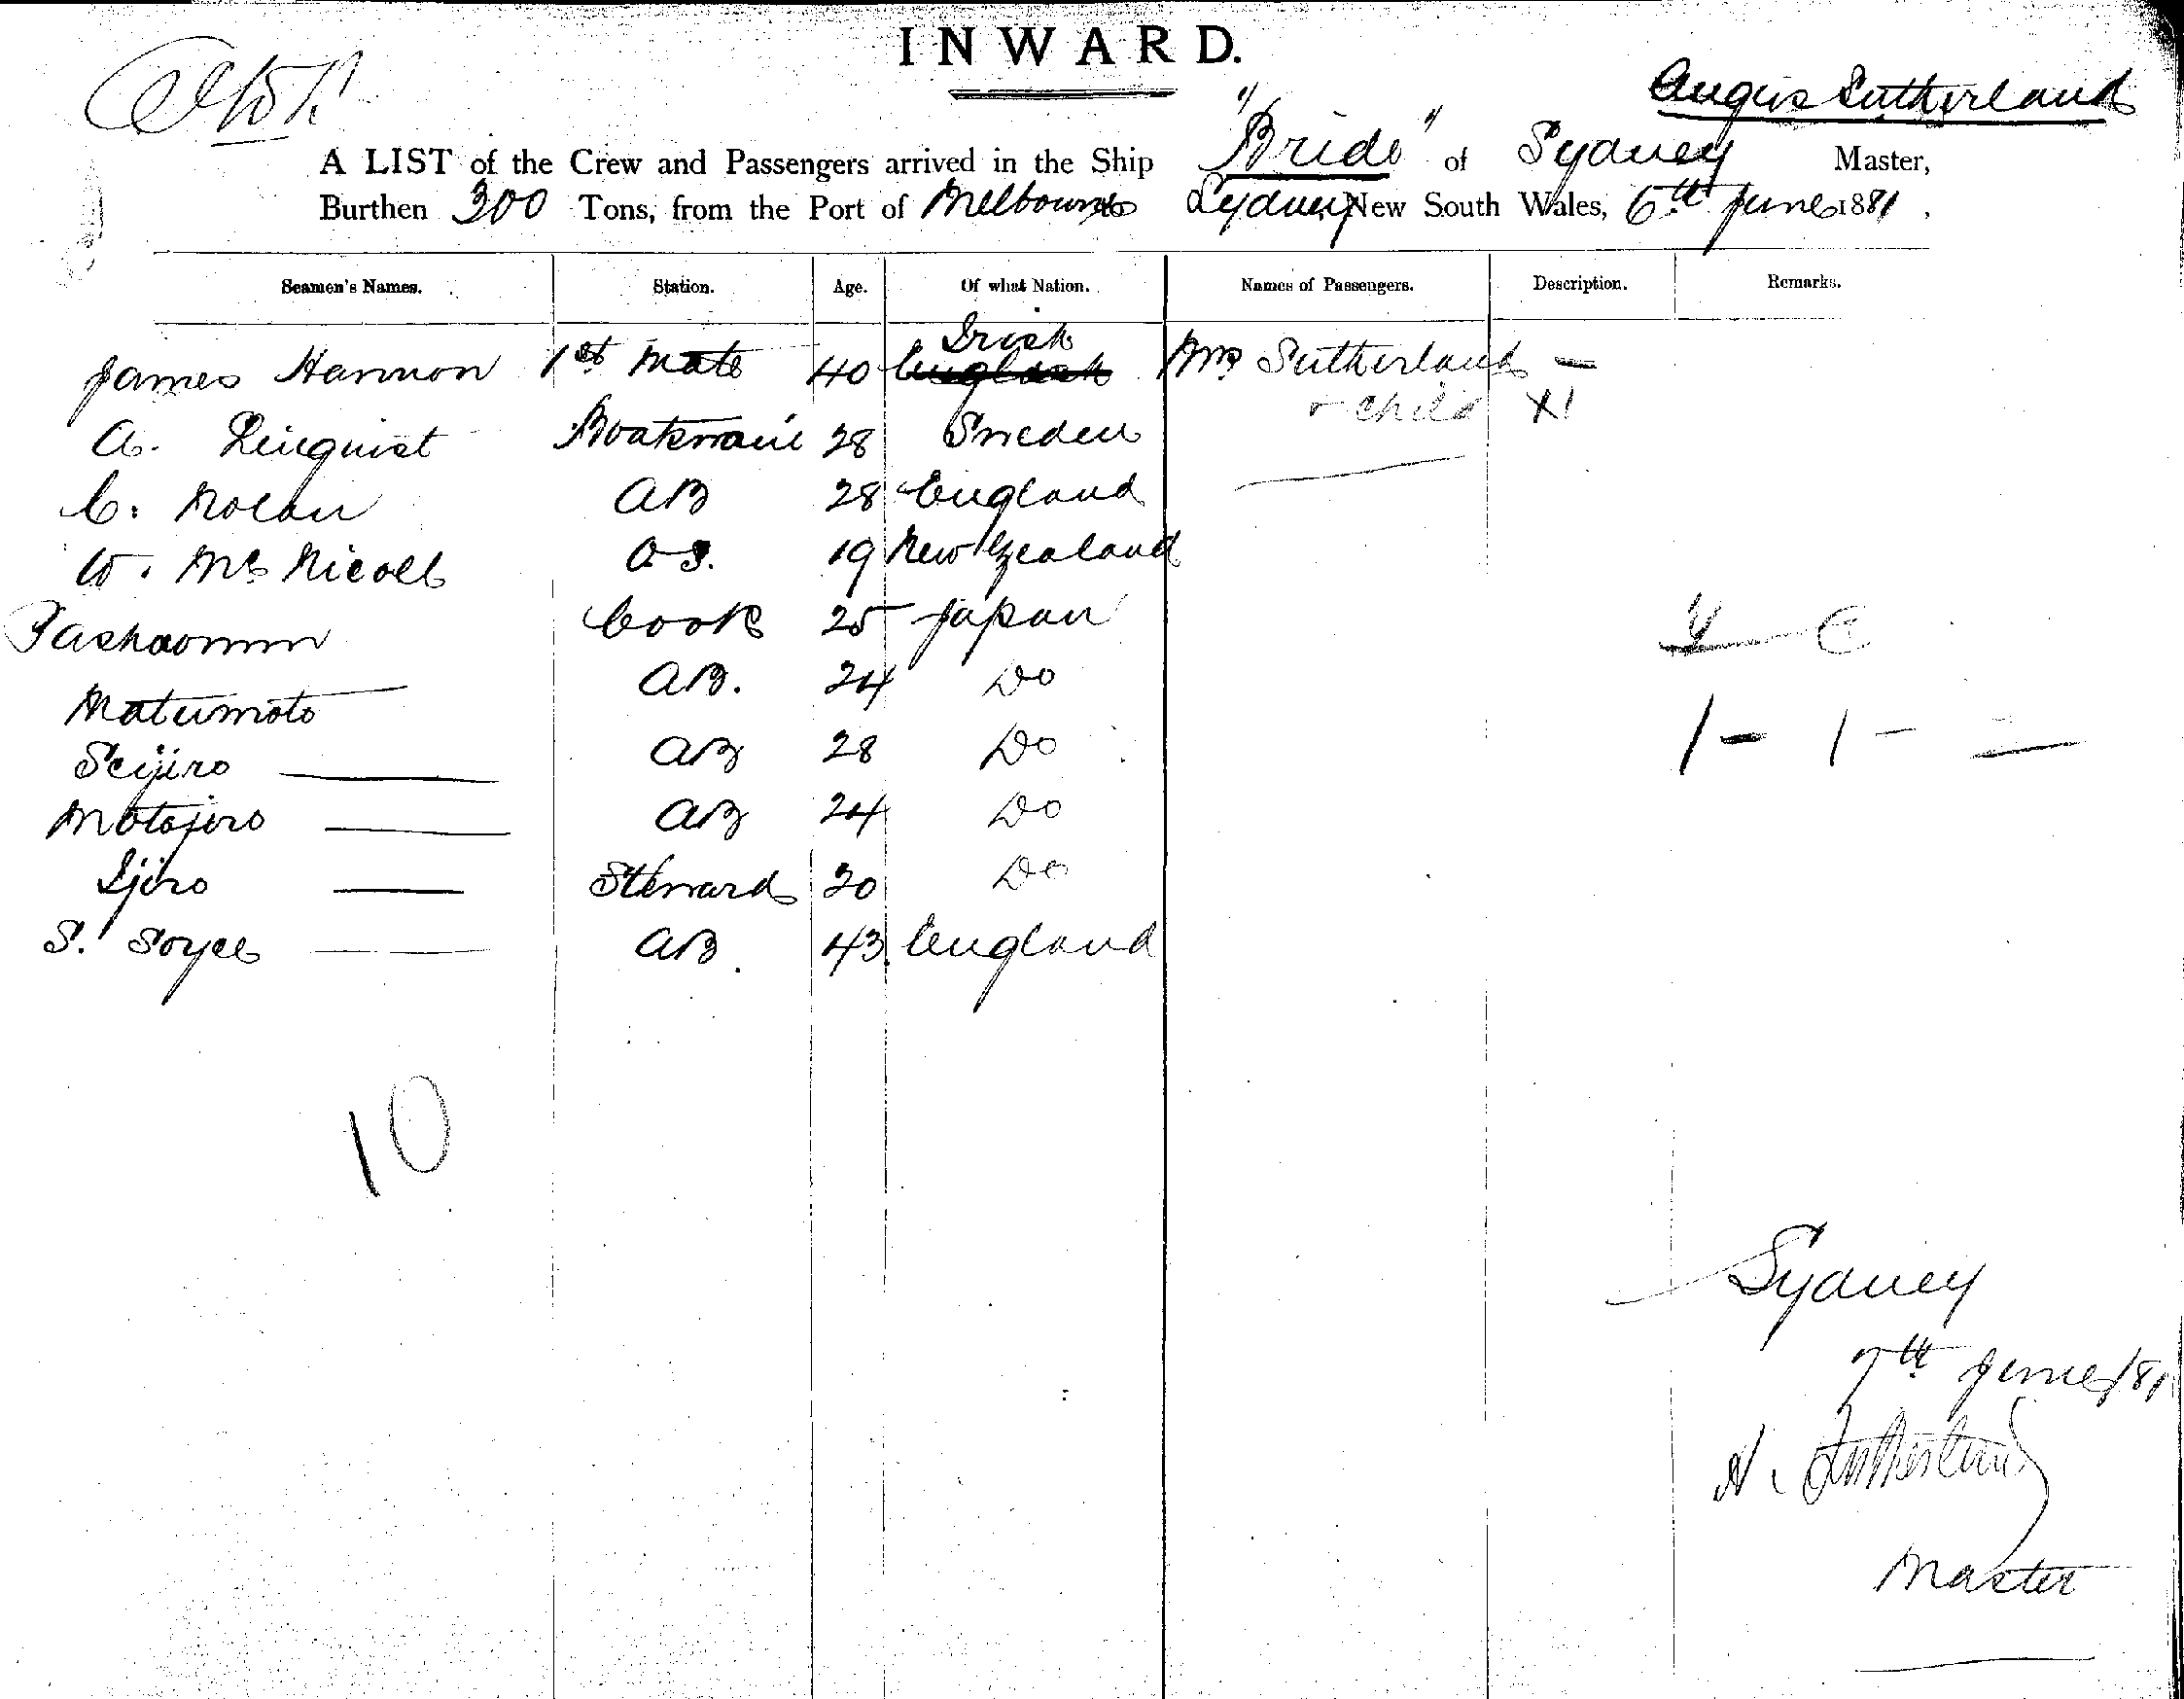 INWARD.
Angus Sutherland
A LIST of the Crew and Passengers arrived in the Ship "Bride" of Sydney Master,
Burthen 300 Tons, from the Port of Melbourne Sydney New South Wales, 6th June 1881.
Seamen's Names. Station. Age. Of what Nation. Names of Passengers. Description. Remarks.
Irish
James Hannon 1st Mate 40 English Mrs Sutherland —
& child X1
A. Linquist Boatswain 28 Sweden
C. Nolan AB 28 England
W. McNicoll O.S. 19 New Zealand
Cook 25 Japan
Matumoto AB. 24 Do
1 - 1 -
Seijiro AB 28 Do
Motojiro AB 24 Do
Ijiro Steward 20 Do
S. Soyce AB. 43 England
10
Sydney
7th June/81
A. Sutherland
Master